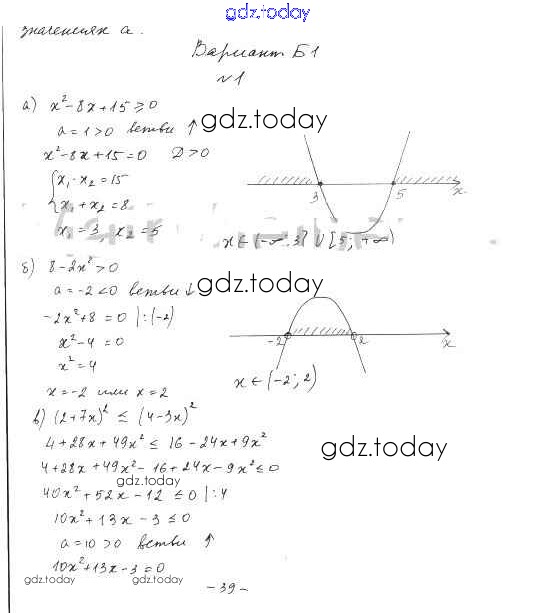 gdz.today
значениях a.
Вариант Б1
№1
а) x²-8x+15≥0
a=1>0 ветви ↑
gdz.today
x²-8x+15=0 D>0
x₁·x₂=15
x₁+x₂=8
3 5 x
x₁=3, x₂=5
x∈(-∞;3]∪[5;+∞)
б) 8-2x²>0
a=-2<0 ветви ↓
gdz.today
-2x²+8=0 |:(-2)
x²-4=0
-2 2 x
x²=4
x=-2 или x=2
x∈(-2;2)
в) (2+7x)²≤(4-3x)²
4+28x+49x²≤16-24x+9x²
gdz.today
4+28x+49x²-16+24x-9x²≤0
gdz.today gdz.today
40x²+52x-12≤0 |:4
10x²+13x-3≤0
a=10>0 ветви ↑
10x²+13x-3=0
gdz.today gdz.today
-39-